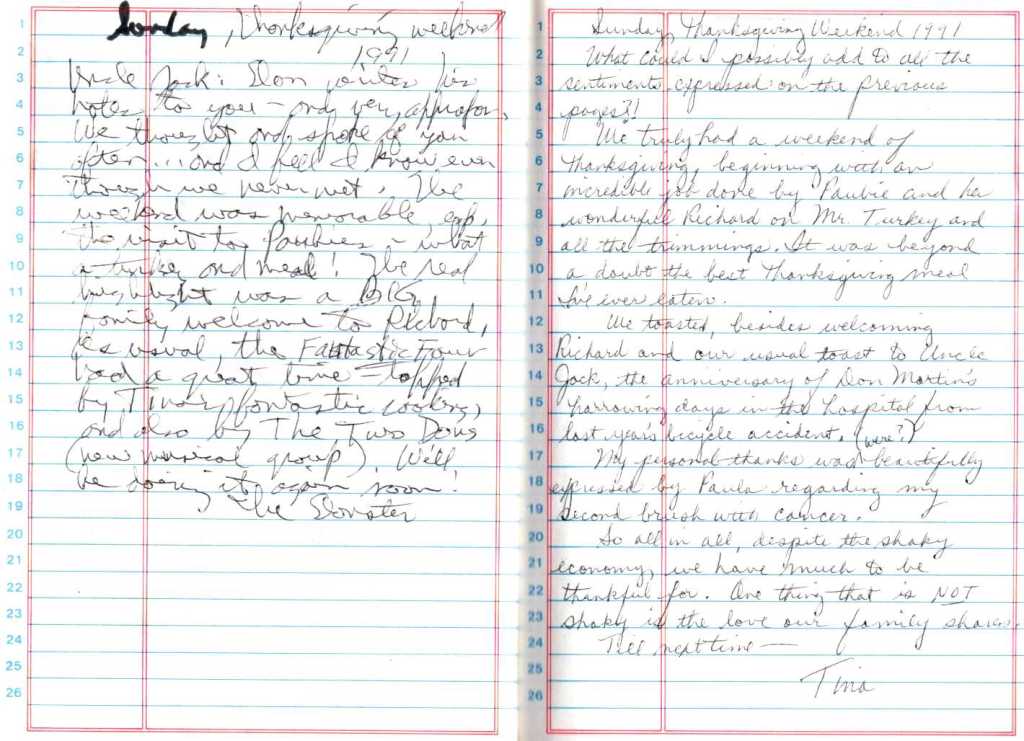 Sunday, Thanksgiving weekend
1991
Uncle Jack: Don writes his
notes to you – and very approp.
We thought and spoke of you
often... and I feel I know even
though we never met. The
weekend was memorable, esp.
the visit to Paubies – what
a turkey and meal! The real
highlight was a BIG
family welcome to Richard,
As usual, the Fantastic Four
had a great time – topped
by Tina's fantastic cooking,
and also by The Two Dons
(new musical group). We'll
be doing it again soon!
The Donster
1
2
3
4
5
6
7
8
9
10
11
12
13
14
15
16
17
18
19
20
21
22
23
24
25
26
Sunday, Thanksgiving Weekend 1991
What could I possibly add to all the
sentiments expressed on the previous
pages?!
We truly had a weekend of
Thanksgiving, beginning with an
incredible job done by Paubie and her
wonderful Richard on Mr. Turkey and
all the trimmings. It was beyond
a doubt the best Thanksgiving meal
I've ever eaten.
We toasted, besides welcoming
Richard and our usual toast to Uncle
Jack, the anniversary of Don Martin's
harrowing days in the hospital from
last year's bicycle accident. (were?)
My personal thanks was beautifully
expressed by Paula regarding my
second brush with cancer.
So all in all, despite the shaky
economy, we have much to be
thankful for. One thing that is NOT
shaky is the love our family shares.
Till next time —
Tina
1
2
3
4
5
6
7
8
9
10
11
12
13
14
15
16
17
18
19
20
21
22
23
24
25
26